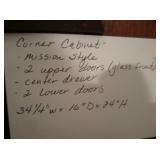 Corner Cabinet -
- Mission Style
- 2 upper doors (glass front)
- center drawer
- 2 lower doors
34 1/4" w = 16" D = 84" H